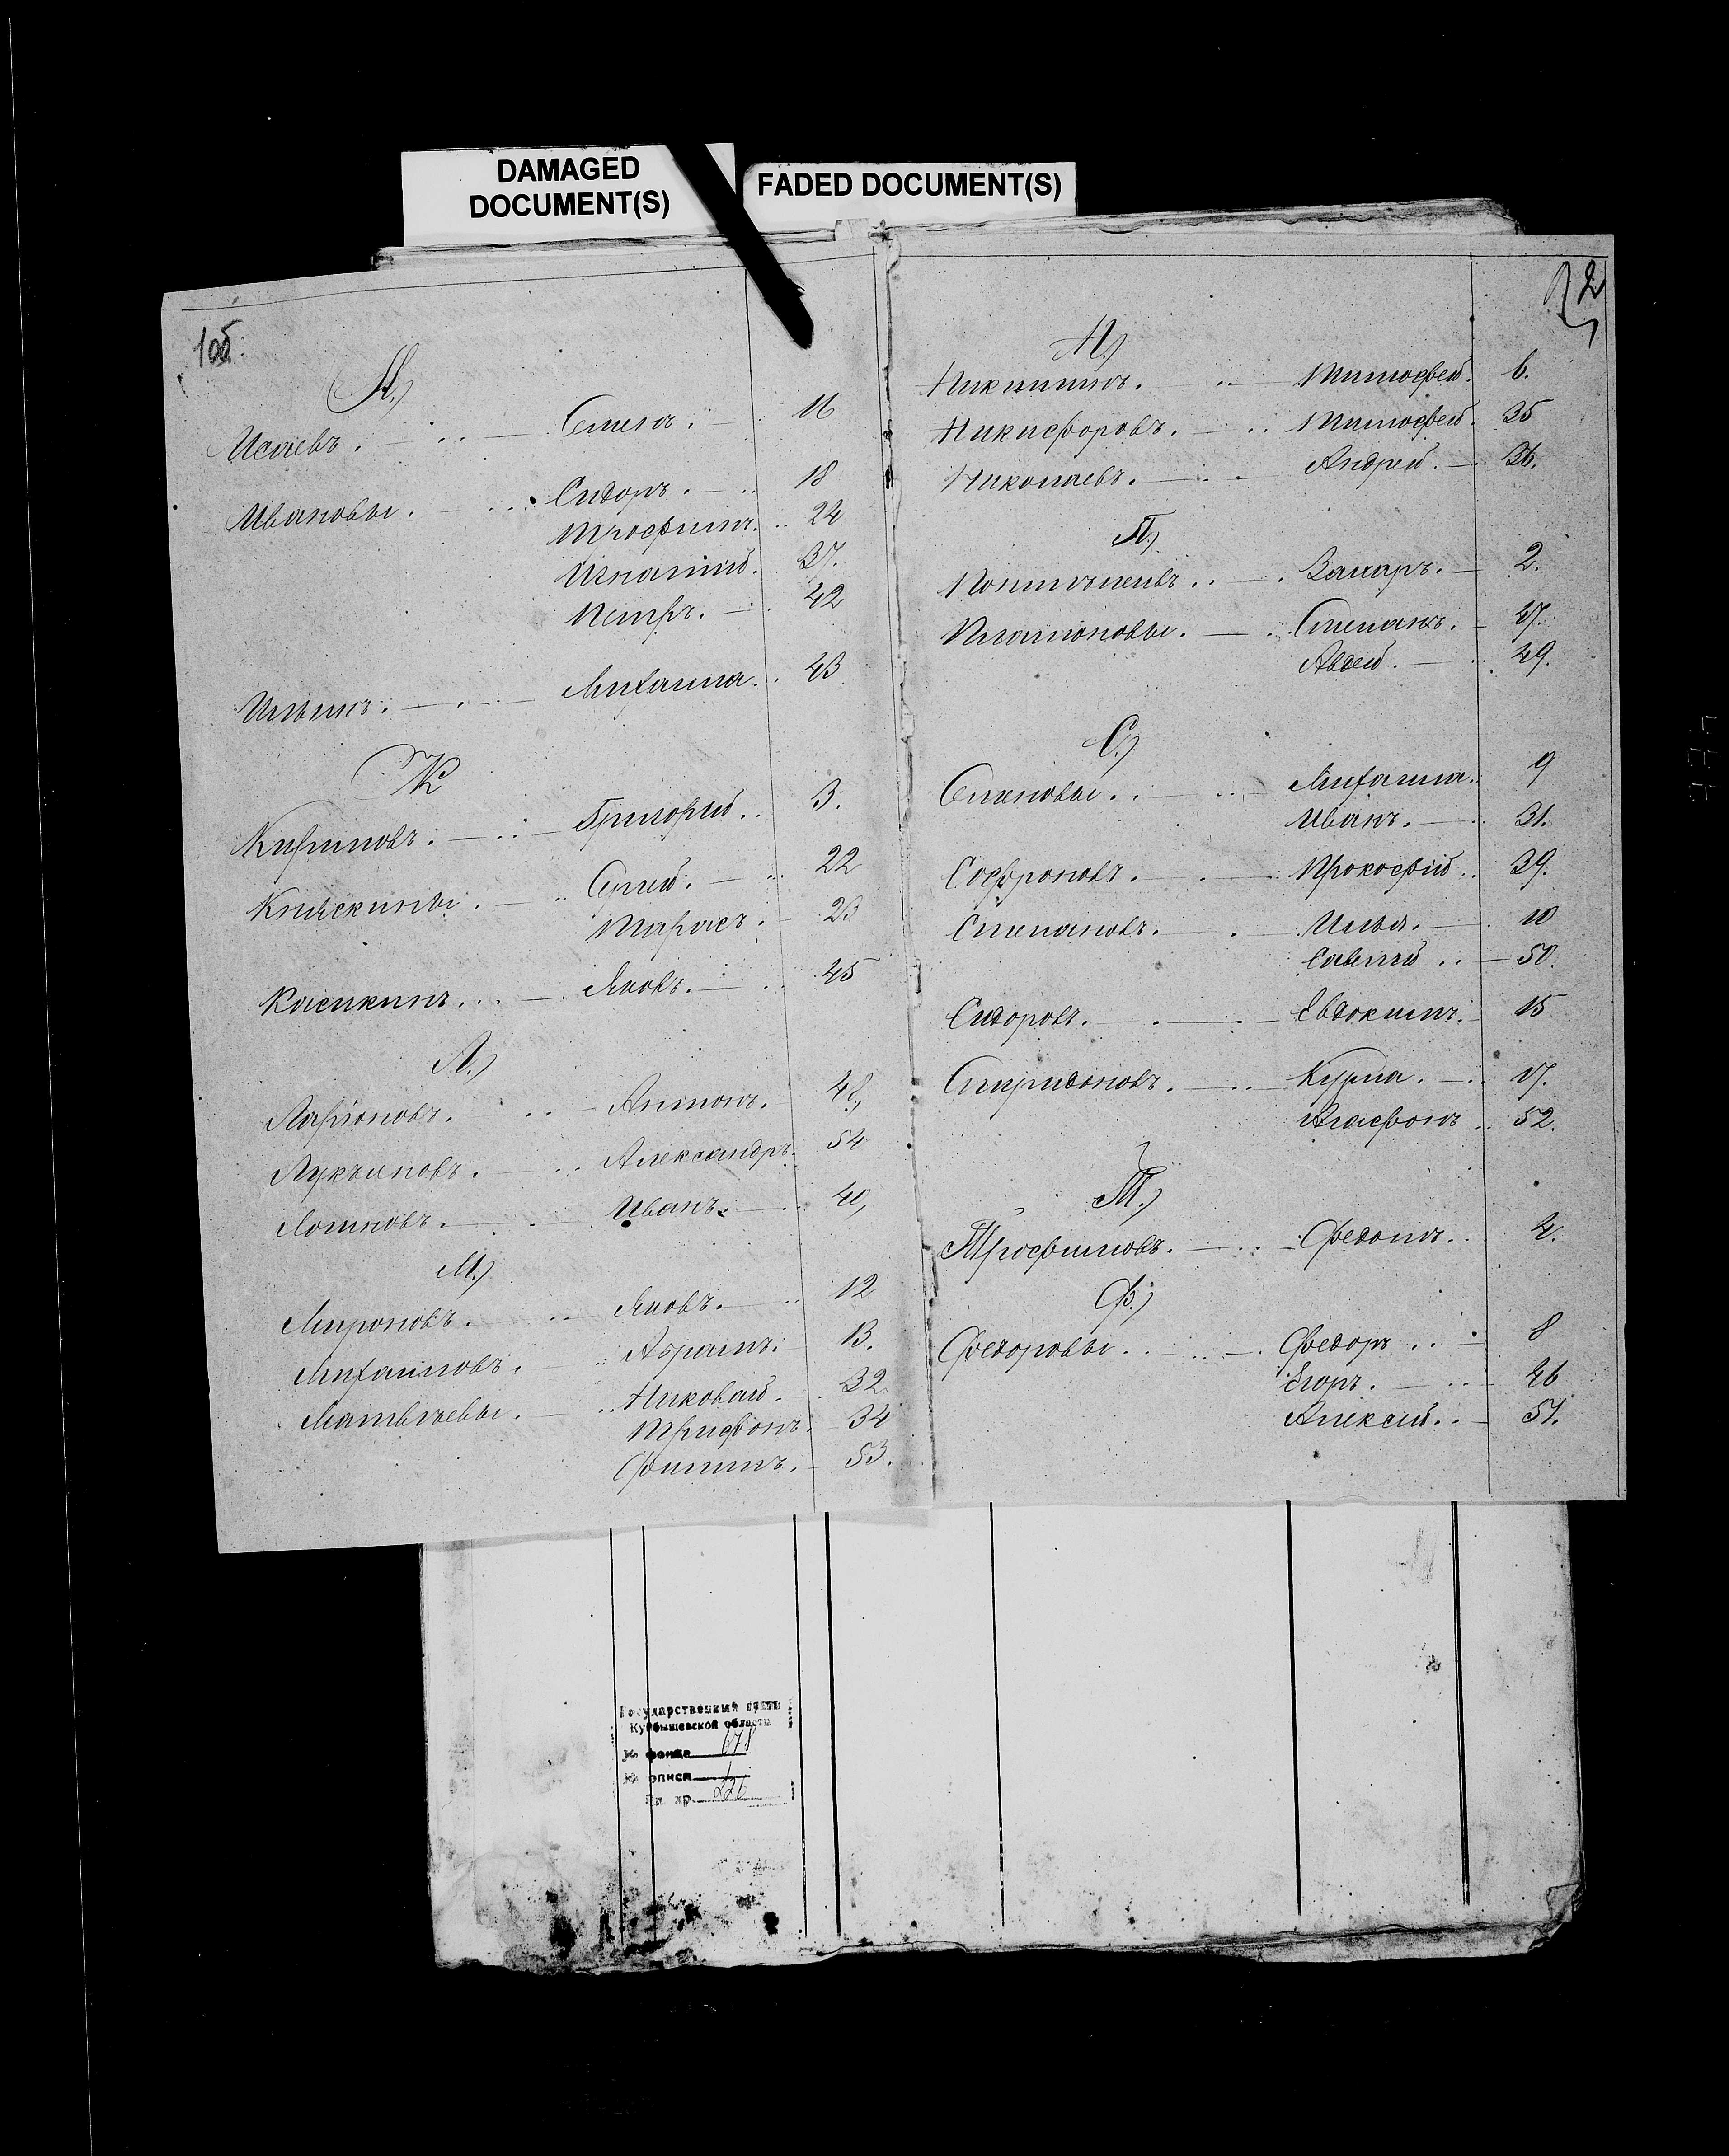 DAMAGED
DOCUMENT(S)
FADED DOCUMENT(S)
1об.
И.)
Исаевъ. Семенъ. 16
Ивановы. Сидоръ. 18
Трофимъ. 24
Игнатий. 37.
Петръ. 42
Ильинъ. Михаила. 43
К
Кириловъ. Григорий. 3.
Сергей. 22
Тарасъ. 23
Касикинъ. Яковъ. 45
Л.)
Ларионовъ. Антонъ. 48,
Лукъяновъ. Александръ. 54
Логиновъ. Иванъ. 40,
М.)
Мироновъ. Яковъ. 12
Михаиловъ. Абрамъ. 13.
Матвѣевы. Николай. 32
Трифонъ. 34
Филипъ. 53.
2
Н.)
Никитинъ. Тимофей. 6.
Никифоровъ. Тимофей. 35
Николаевъ. Андрей. 36.
П.)
Захаръ. 2.
Платоновы. Степанъ. 47.
Авдей. 49.
С.)
Семеновы. Михаила. 9
Иванъ. 31.
Софроновъ. Прокофий. 39.
Степановъ. Илья. 10
Савелий 50.
Сидоровъ. Евдокимъ. 15
Спиридоновъ. Кузма. 17.
Агафонъ 52.
Т.)
Трофимовъ. Федотъ. 4.
Ф.)
Федоровы. Федоръ 8
Егоръ. 46
Алексей. 51.
Государственный архив
Куйбышевской области
№ фонда 678
№ описи 1
Ед. хр.